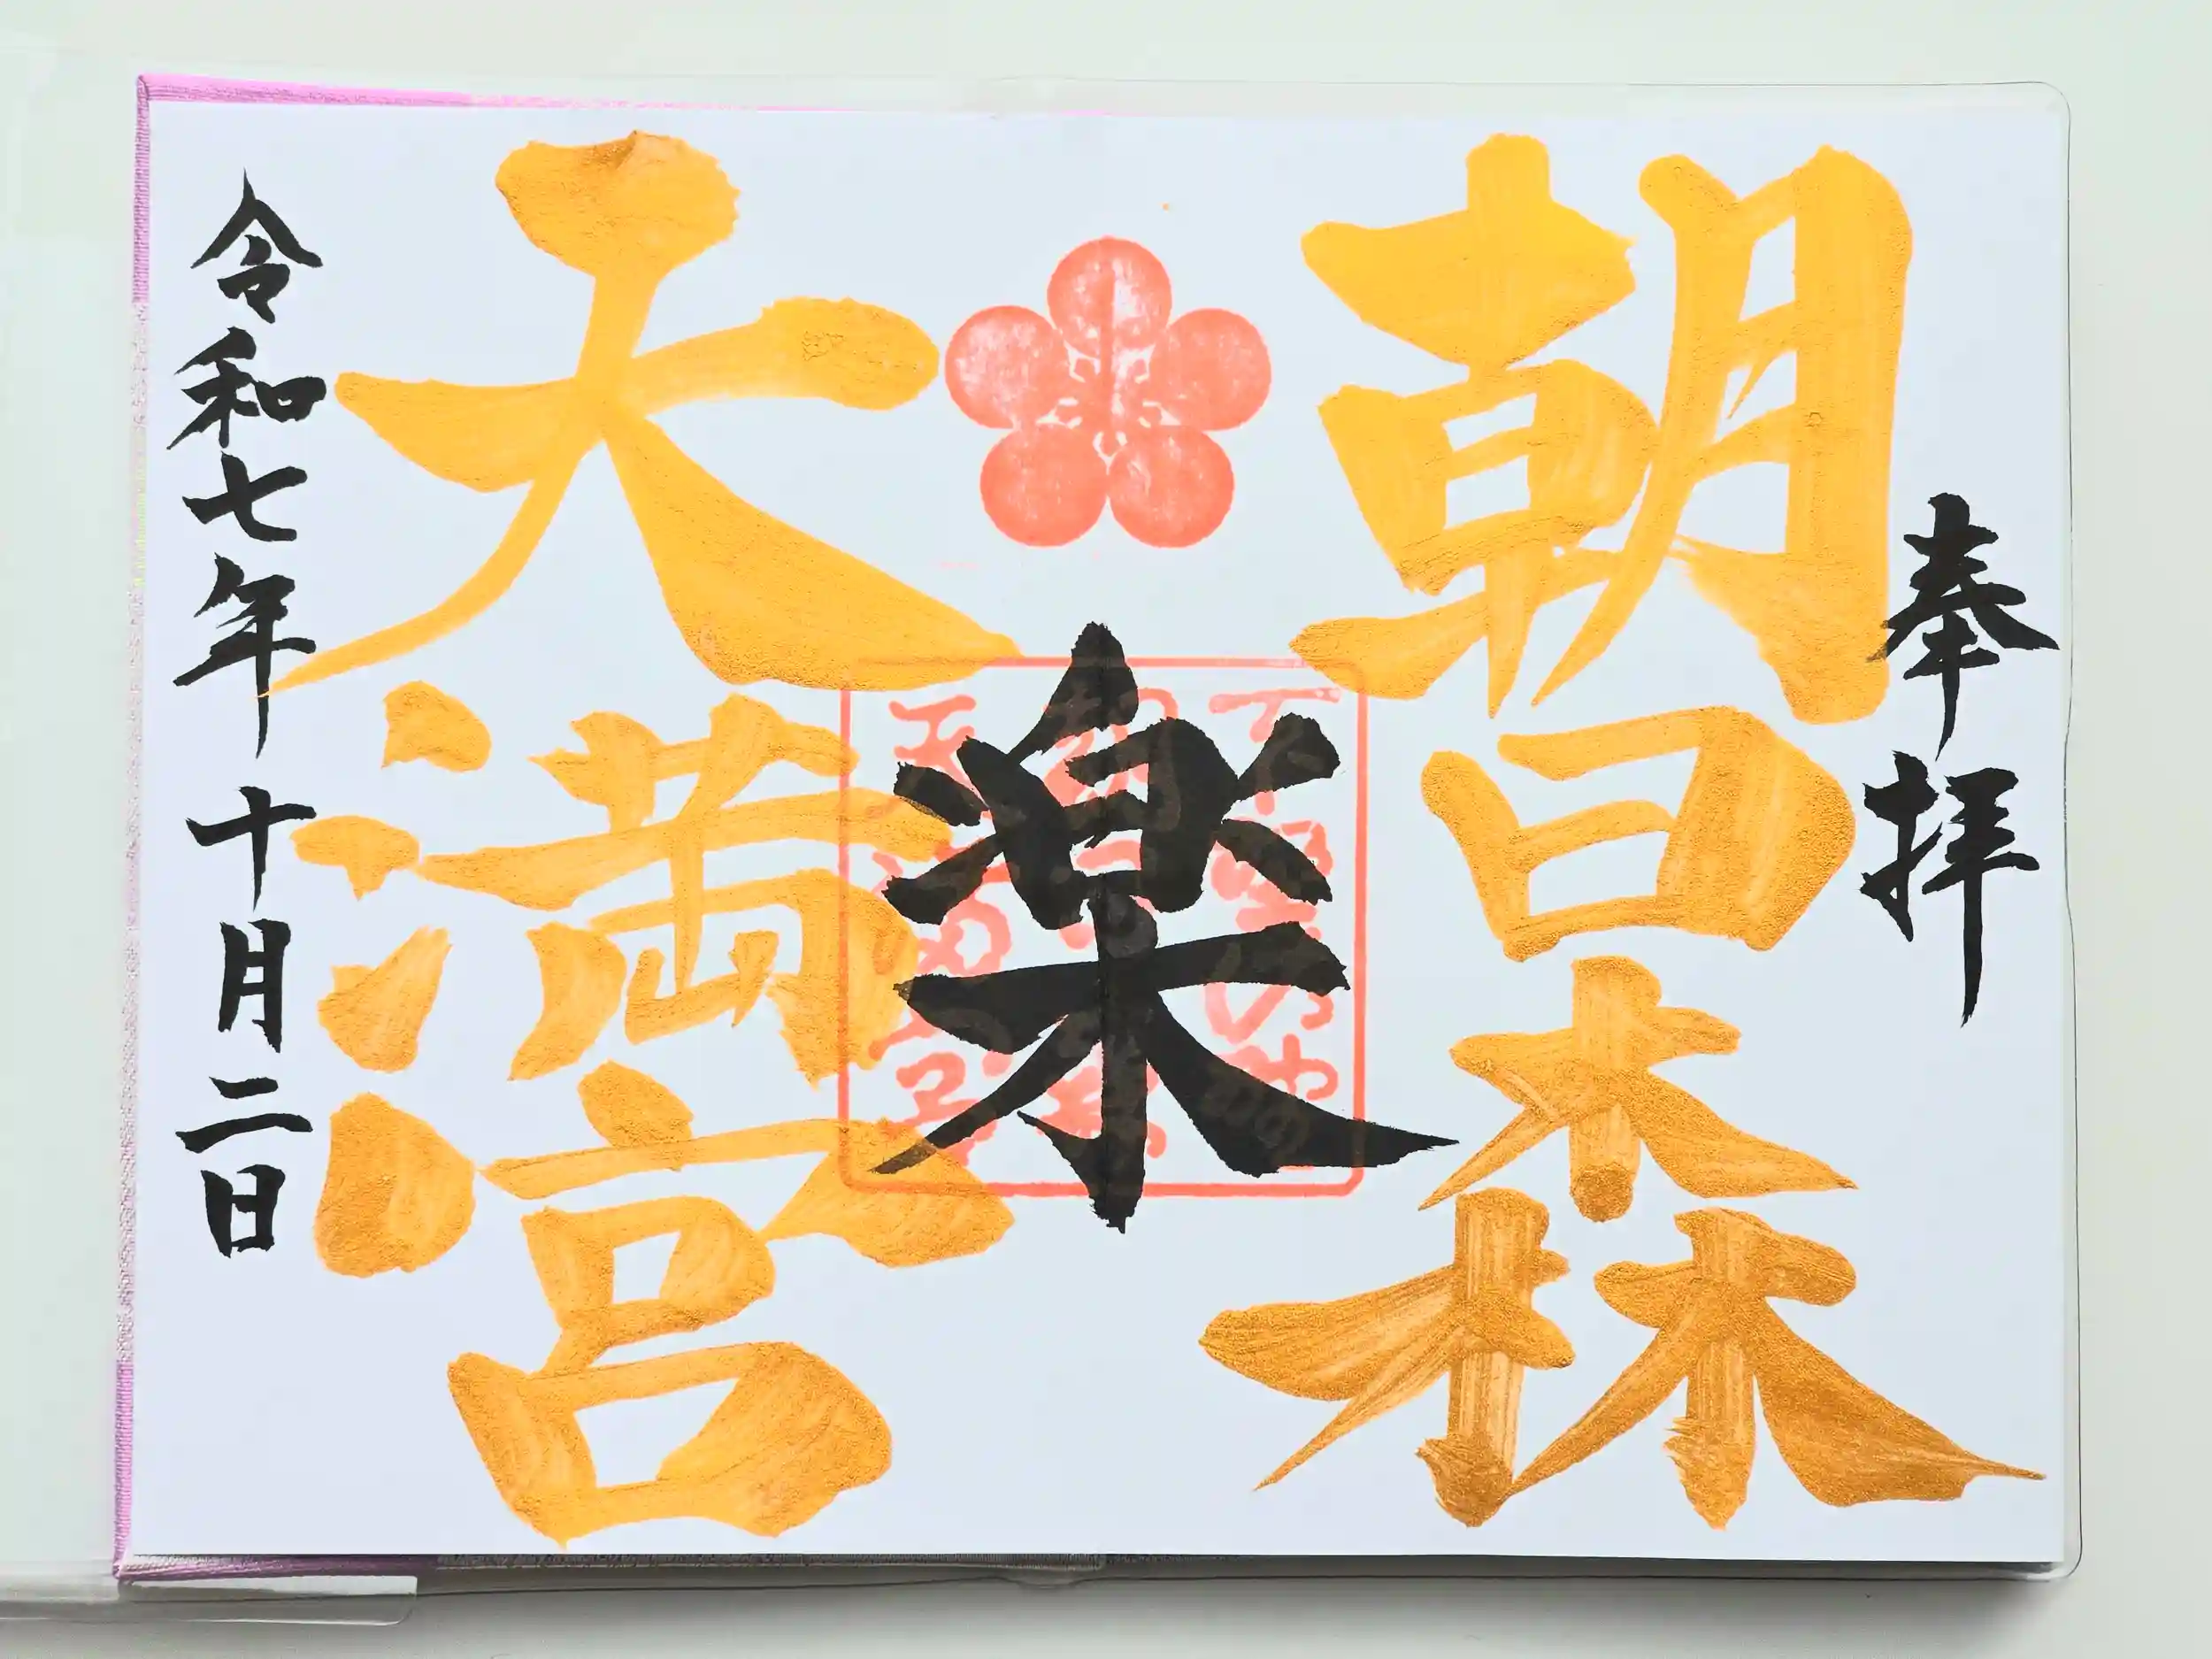 奉拝
朝日森
天満宮
楽
令和七年十月二日